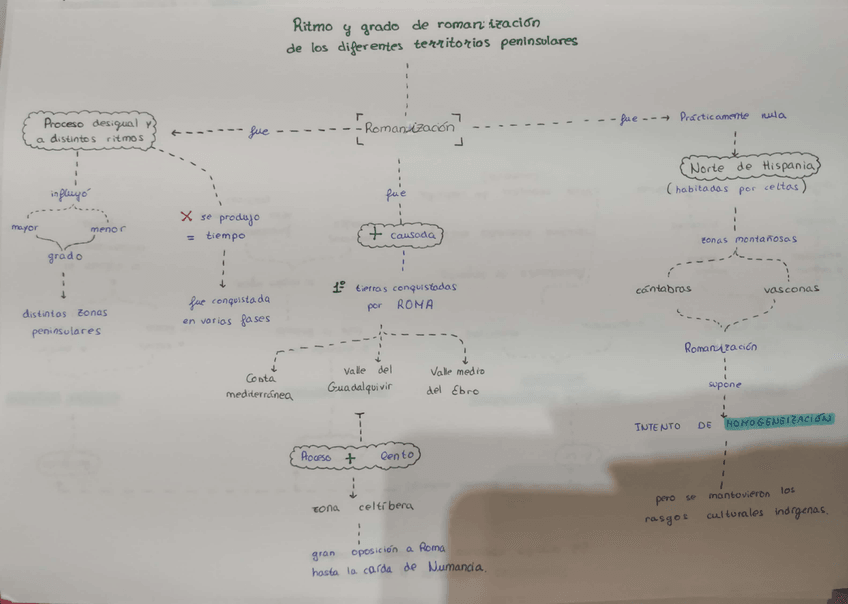 Ritmo y grado de romanización
de los diferentes territorios peninsulares
Proceso desigual y
a distintos ritmos
fue
Romanización
fue
Prácticamente nula
influyó
mayor
menor
grado
distintas zonas
peninsulares
X se produjo
= tiempo
fue conquistada
en varias fases
fue
+ causada
1º tierras conquistadas
por ROMA
Costa
mediterránea
Valle del
Guadalquivir
Valle medio
del Ebro
Proceso + lento
zona celtíbera
gran oposición a Roma
hasta la caída de Numancia.
Norte de Hispania
(habitadas por celtas)
zonas montañosas
cántabras
vasconas
Romanización
supone
INTENTO DE HOMOGENEIZACIÓN
pero se mantuvieron los
rasgos culturales indígenas.